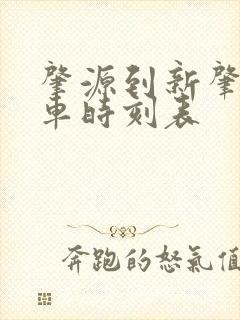 肇源到新肇
車時刻表
奔跑的怒氣值